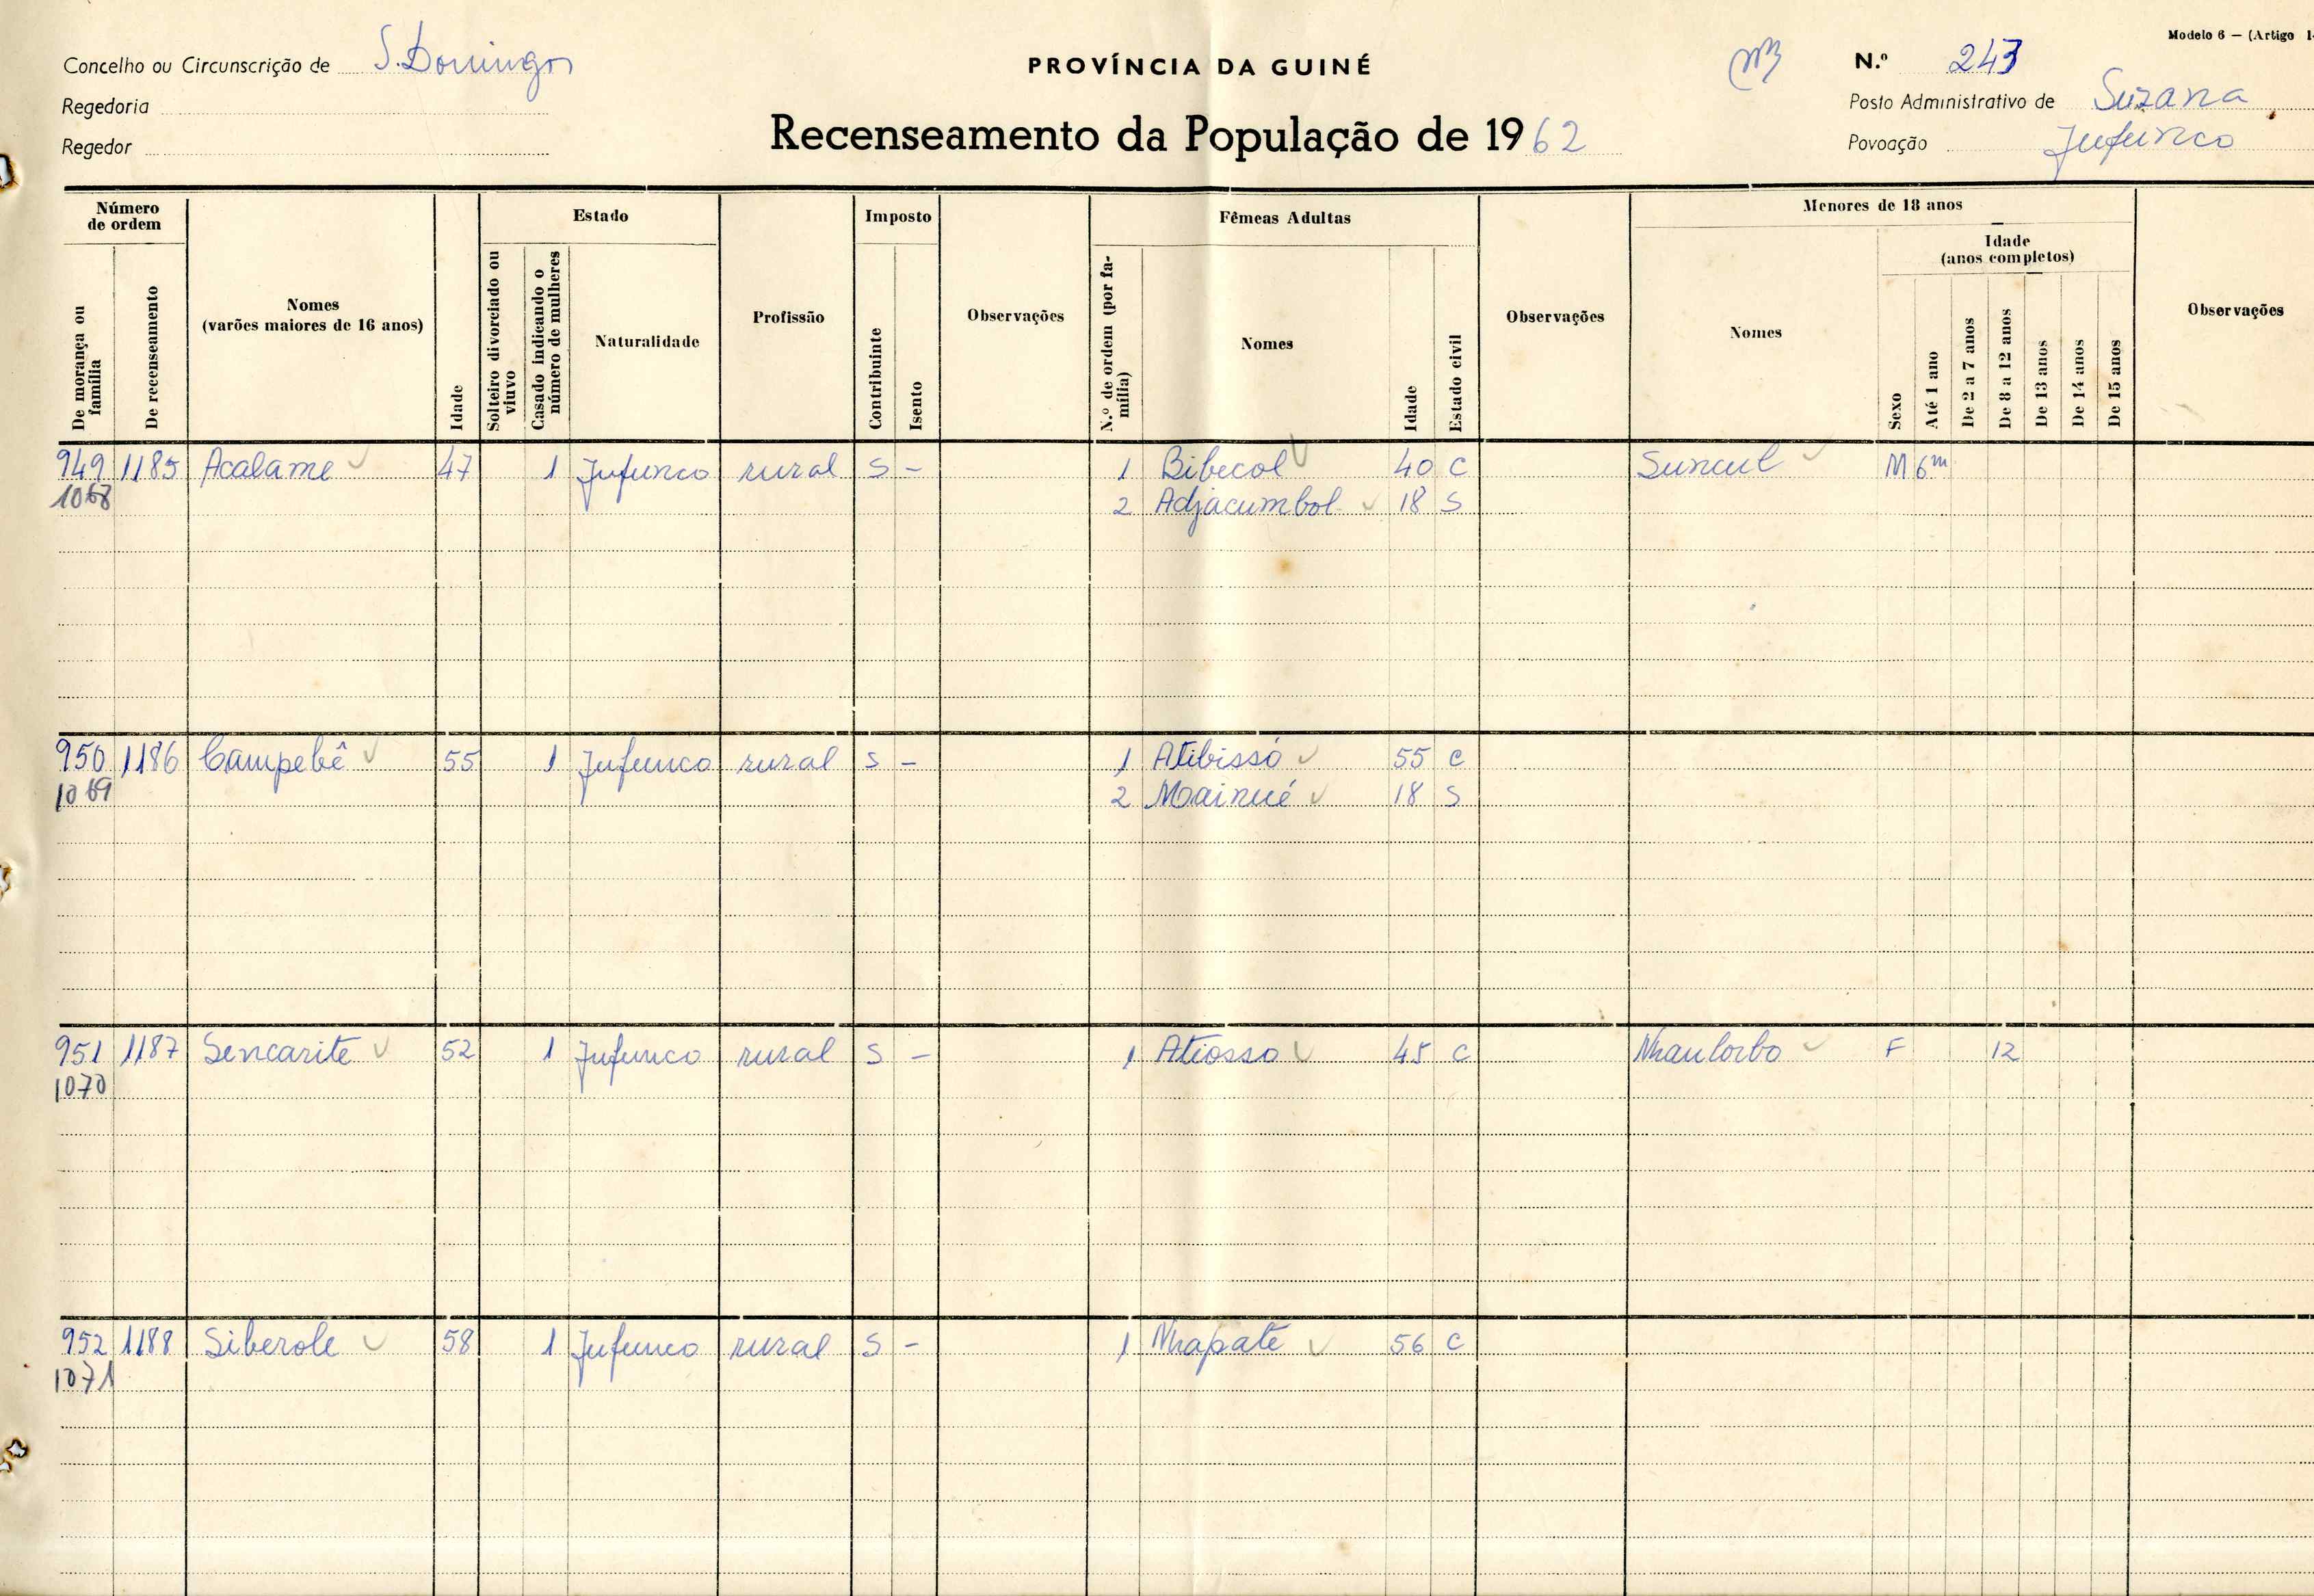 Modelo 6 — (Artigo 1
Concelho ou Circunscrição de S. Domingos
PROVÍNCIA DA GUINÉ
N.º 243
Regedoria
Posto Administrativo de Suzana
Regedor
Recenseamento da População de 1962
Povoação Jufunco
Número de ordem
Estado
Imposto
Fêmeas Adultas
Menores de 18 anos
Idade (anos completos)
De morança ou família
De recenseamento
Nomes (varões maiores de 16 anos)
Idade
Solteiro divorciado ou viuvo
Casado indicando o número de mulheres
Naturalidade
Profissão
Contribuinte
Isento
Observações
N.º de ordem (por família)
Nomes
Idade
Estado civil
Observações
Nomes
Sexo
Até 1 ano
De 2 a 7 anos
De 8 a 12 anos
De 13 anos
De 14 anos
De 15 anos
Observações
949 1185 Acalame 47 1 Jufunco rural S - 1 Bibecol 40 C Suncul M 6m
1068 2 Adjacumbol 18 S
950 1186 Campebê 55 1 Jufunco rural S - 1 Atibissó 55 C
1069 2 Mainué 18 S
951 1187 Sencarite 52 1 Jufunco rural S - 1 Atiosso 45 C Nhaulorbo F 12
1070
952 1188 Siberole 58 1 Jufunco rural S - 1 Nhapate 56 C
1071